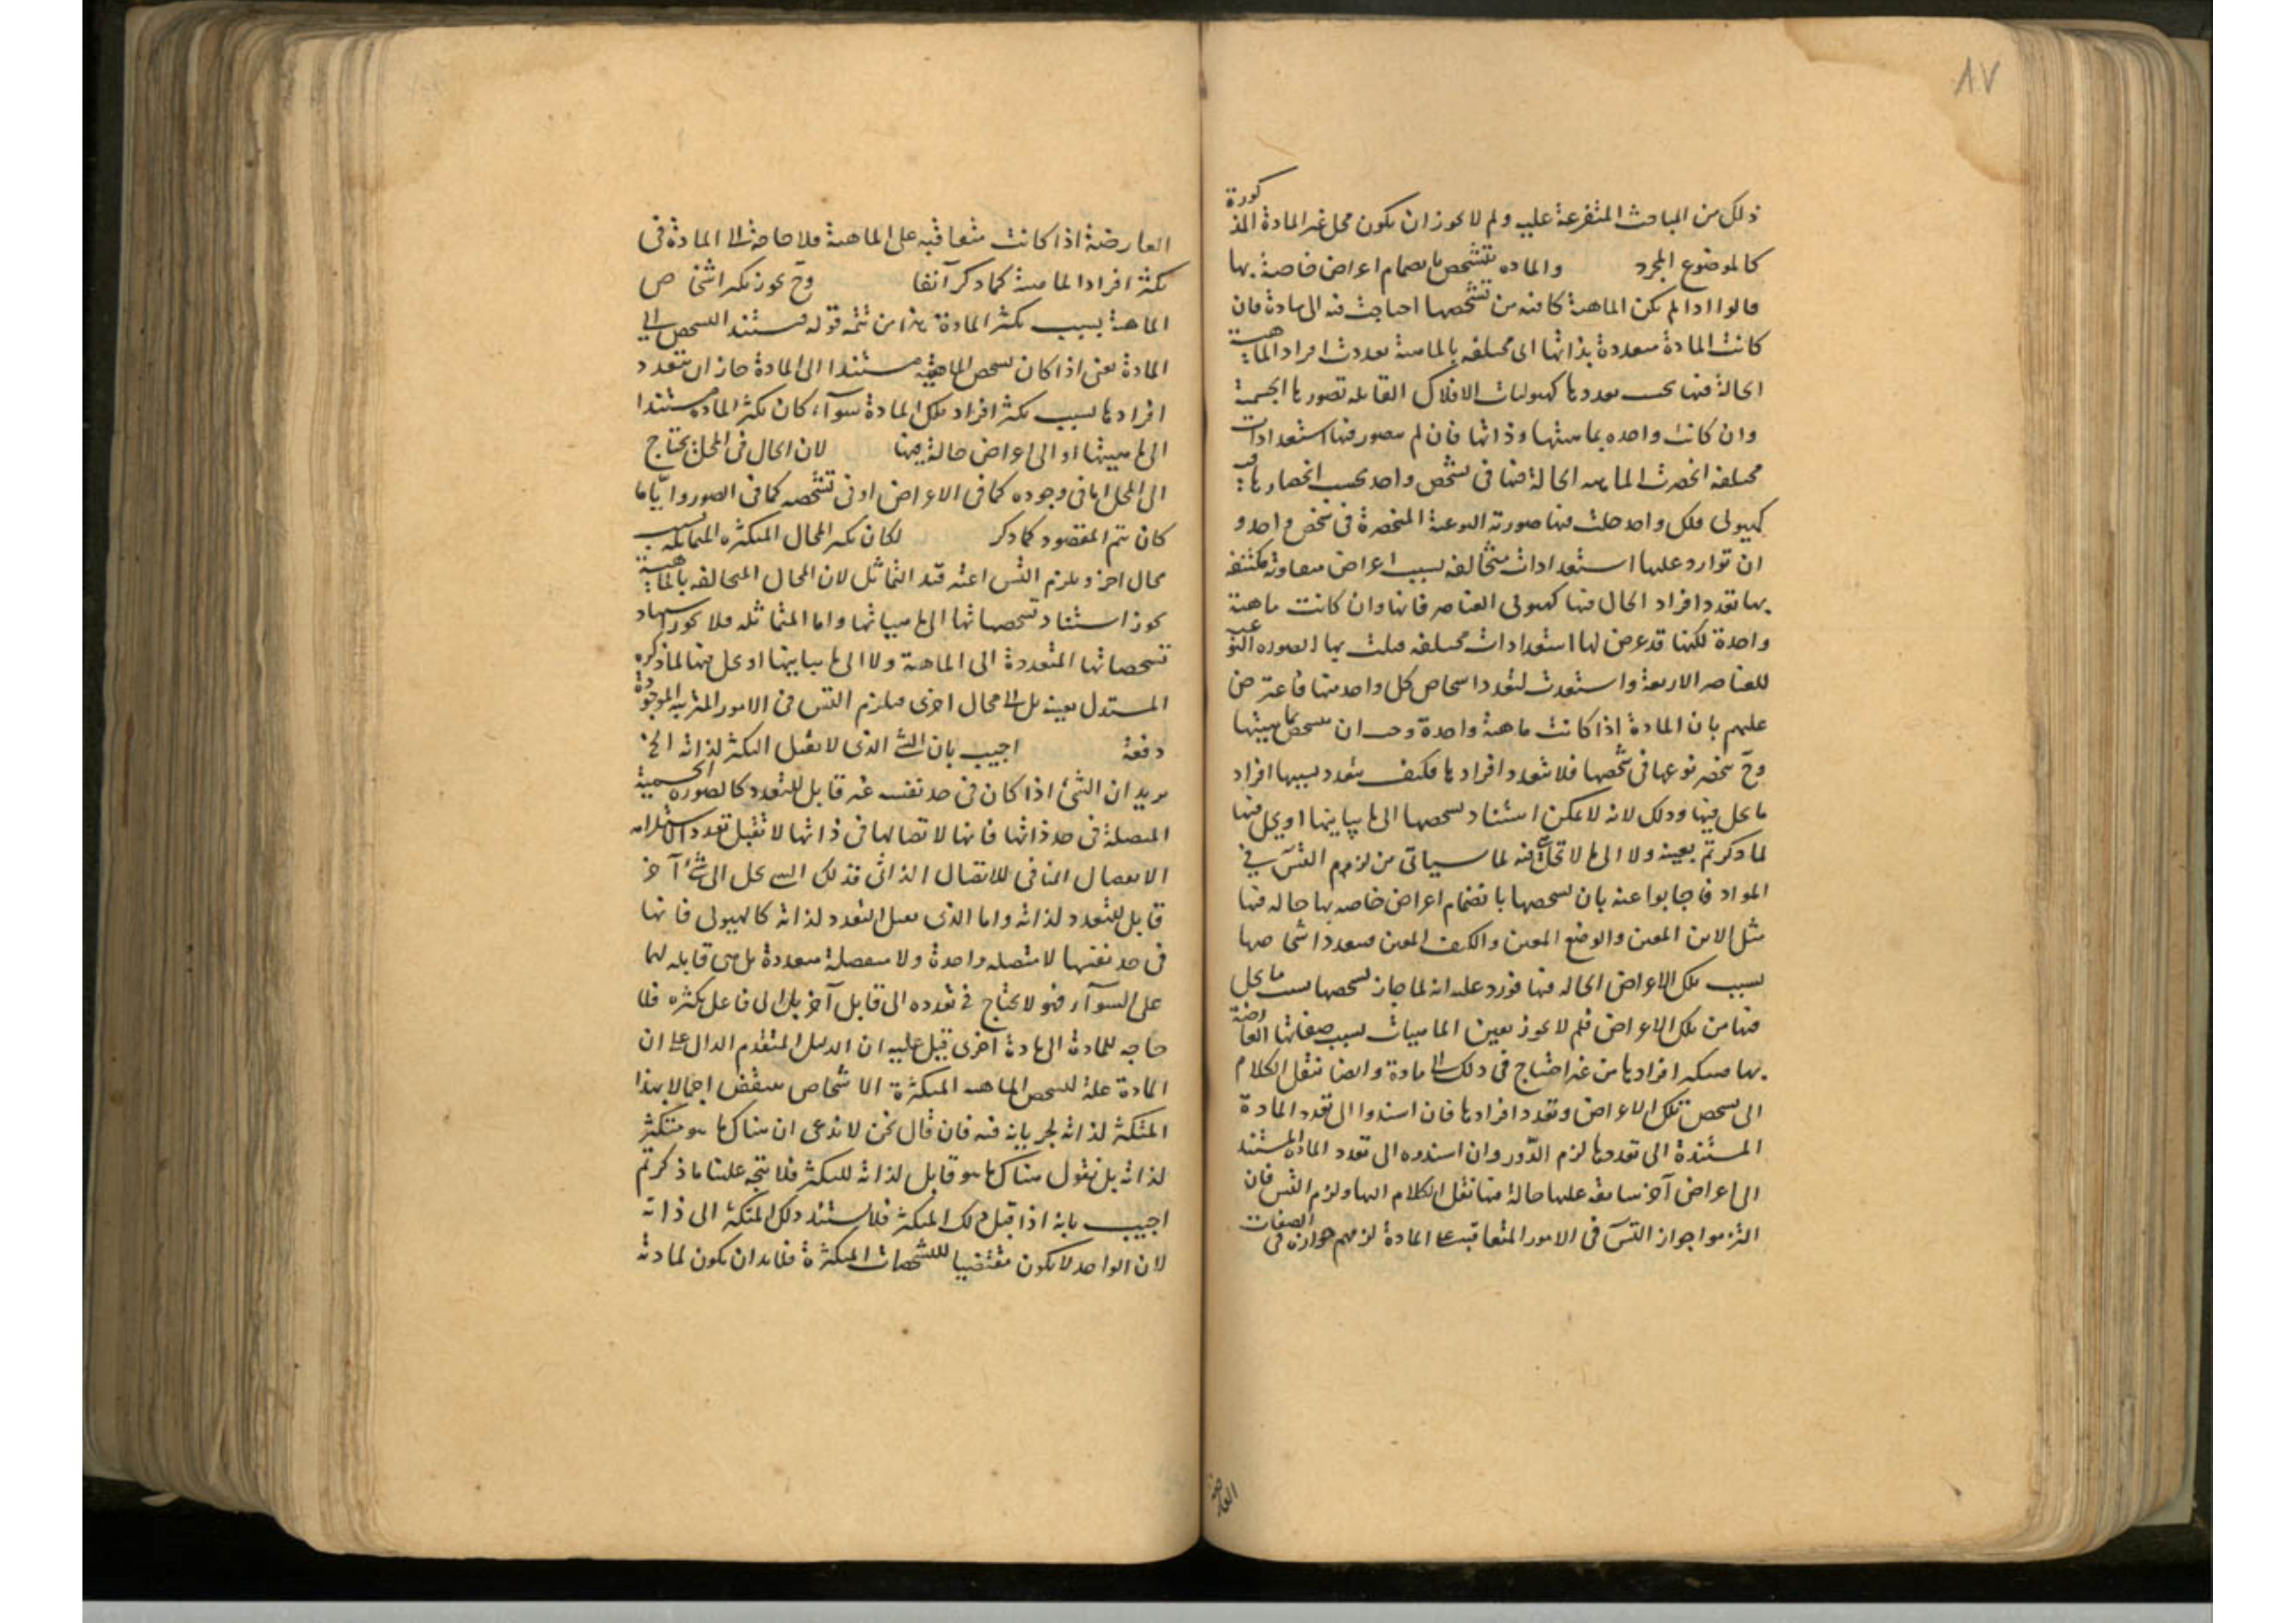 ٨٧
ذلك من المباحث المتفرعة عليه ولم لا يجوز ان يكون محل غير المادة المذكورة
كالموضوع المجرد والماده تتشخص بانضمام اعراض خاصة بها
قالوا اذا لم يكن الماهية كافيه من تشخصها احتاجت فيه الى مادة فان
كانت المادة متعددة بذاتها اى مختلفه بالماهية تعددت افراد الماهية
الحالة فيها بحسب تعددها كهيوليات الافلاك القابله لصورها الجسمية
وان كانت واحده بماهيتها وذاتها فان لم يتصور فيها استعدادات
مختلفه انحصرت الماهيه الحالة فيها فى شخص واحد بحسب انحصارها فيه
كهيولى فلك واحد حلت فيها صورته النوعية المنحصرة فى شخص واحد و
ان توارد عليها استعدادات متخالفه بسبب اعراض متعاونة مكتنفه
بها تعدد افراد الحال فيها كهيولى العناصر فانها وان كانت ماهية
واحدة لكنها قد عرض لها استعدادات مختلفه قبلت بها الصوره النوعيه
للعناصر الاربعة واستعدت لتعدد اشخاص كل واحد منها فاعترض
عليهم بان المادة اذا كانت ماهية واحدة وجب ان تشخص بماهيتها
وح ينحصر نوعها فى شخصها فلا تتعدد افرادها فكيف يتعدد بسببها افراد
ما يحل فيها وذلك لانه لا يمكن استناد تشخصها الى ما يباينها او يحل فيها
لما ذكرتم بعينه ولا الى ما لا تحل فيه لما سياتى من لزوم التس فى
المواد فاجابوا عنه بان تشخصها بانضمام اعراض خاصه بها حاله فيها
مثل الاين المعين والوضع المعين والكيف المعين فيتعدد اشخاصها
بسبب تلك الاعراض الحاله فيها فورد عليه انه لما جاز تشخصها بسبب ما يحل
فيها من تلك الاعراض فلم لا يجوز تعين الماهيات بسبب صفاتها العارضة
بها فيتكثر افرادها من غير احتياج فى ذلك الى مادة وايضا ننقل الكلام
الى تشخص تلك الاعراض وتعدد افرادها فان اسندوا الى تعدد المادة
المستندة الى تعددها لزم الدور وان اسندوه الى تعدد المادة المستند
الى اعراض آخر سابقه عليها حالة فيها ننقل الكلام اليها ولزم التس فان
التزموا جواز التس فى الامور المتعاقبه على المادة لزمهم جوازه فى الصفات
العارضة
العارضة اذا كانت متعاقبه على الماهية فلا حاجة الى المادة فى
تكثر افراد الماهية كما ذكر آنفا وح يجوز تكثر اشخاص
الماهية بسبب تكثر المادة هذا من تتمه قوله فيستند التشخص الى
المادة يعنى اذا كان تشخص الماهية مستندا الى المادة جاز ان يتعدد
افرادها بسبب تكثر افراد تلك المادة سواء كان تكثر المادة مستندا
الى ماهيتها او الى اعراض حالة فيها لان الحال فى المحل يحتاج
الى المحل اما فى وجوده كما فى الاعراض او فى تشخصه كما فى الصور وايّا ما
كان يتم المقصود كما ذكر لكان تكثر المحال المتكثره المتماثله بسبب
محال اخر ويلزم التس اعتبر قيد التماثل لان المحال المتخالفه بالماهية
يجوز استناد تشخصاتها الى ماهياتها واما المتماثله فلا يجوز استناد
تشخصاتها المتعددة الى الماهية ولا الى ما يباينها او يحل فيها لما ذكره
المستدل بعينه بل الى محال اخرى فيلزم التس فى الامور المترتبه الموجودة
دفعة اجيب بان الشئ الذى لا يقبل التكثر لذاته الخ
يريد ان الشئ اذا كان فى حد نفسه غير قابل للتعدد كالصوره الجسمية
المتصلة فى حد ذاتها فانها لاتصالها فى ذاتها لا تقبل تعددا لاستلزامه
الانفصال المنافى للاتصال الذاتى فذلك الشئ يحل الى شئ آخر
قابل للتعدد لذاته واما الذى يقبل التعدد لذاته كالهيولى فانها
فى حد نفسها لا متصله واحدة ولا منفصلة متعددة بل هى قابله لهما
على السوآء فهو لا يحتاج فى تعدده الى قابل آخر بل الى فاعل يكثره فلا
حاجه للمادة الى مادة اخرى قيل عليه ان الدليل المتقدم الدال على ان
المادة علة لتشخص الماهيه المتكثرة الاشخاص ينتقض اجمالا بهذا
المتكثر لذاته لجريانه فيه فان قال نحن لا ندعى ان هناك ما هو متكثر
لذاته بل نقول هناك ما هو قابل لذاته للتكثر فلا يتجه علينا ما ذكرتم
اجيب بانه اذا قبل ذلك المتكثر فلا يستند ذلك المتكثر الى ذاته
لان الواحد لا يكون مقتضيا للتشخصات المتكثرة فلابد ان يكون لمادته